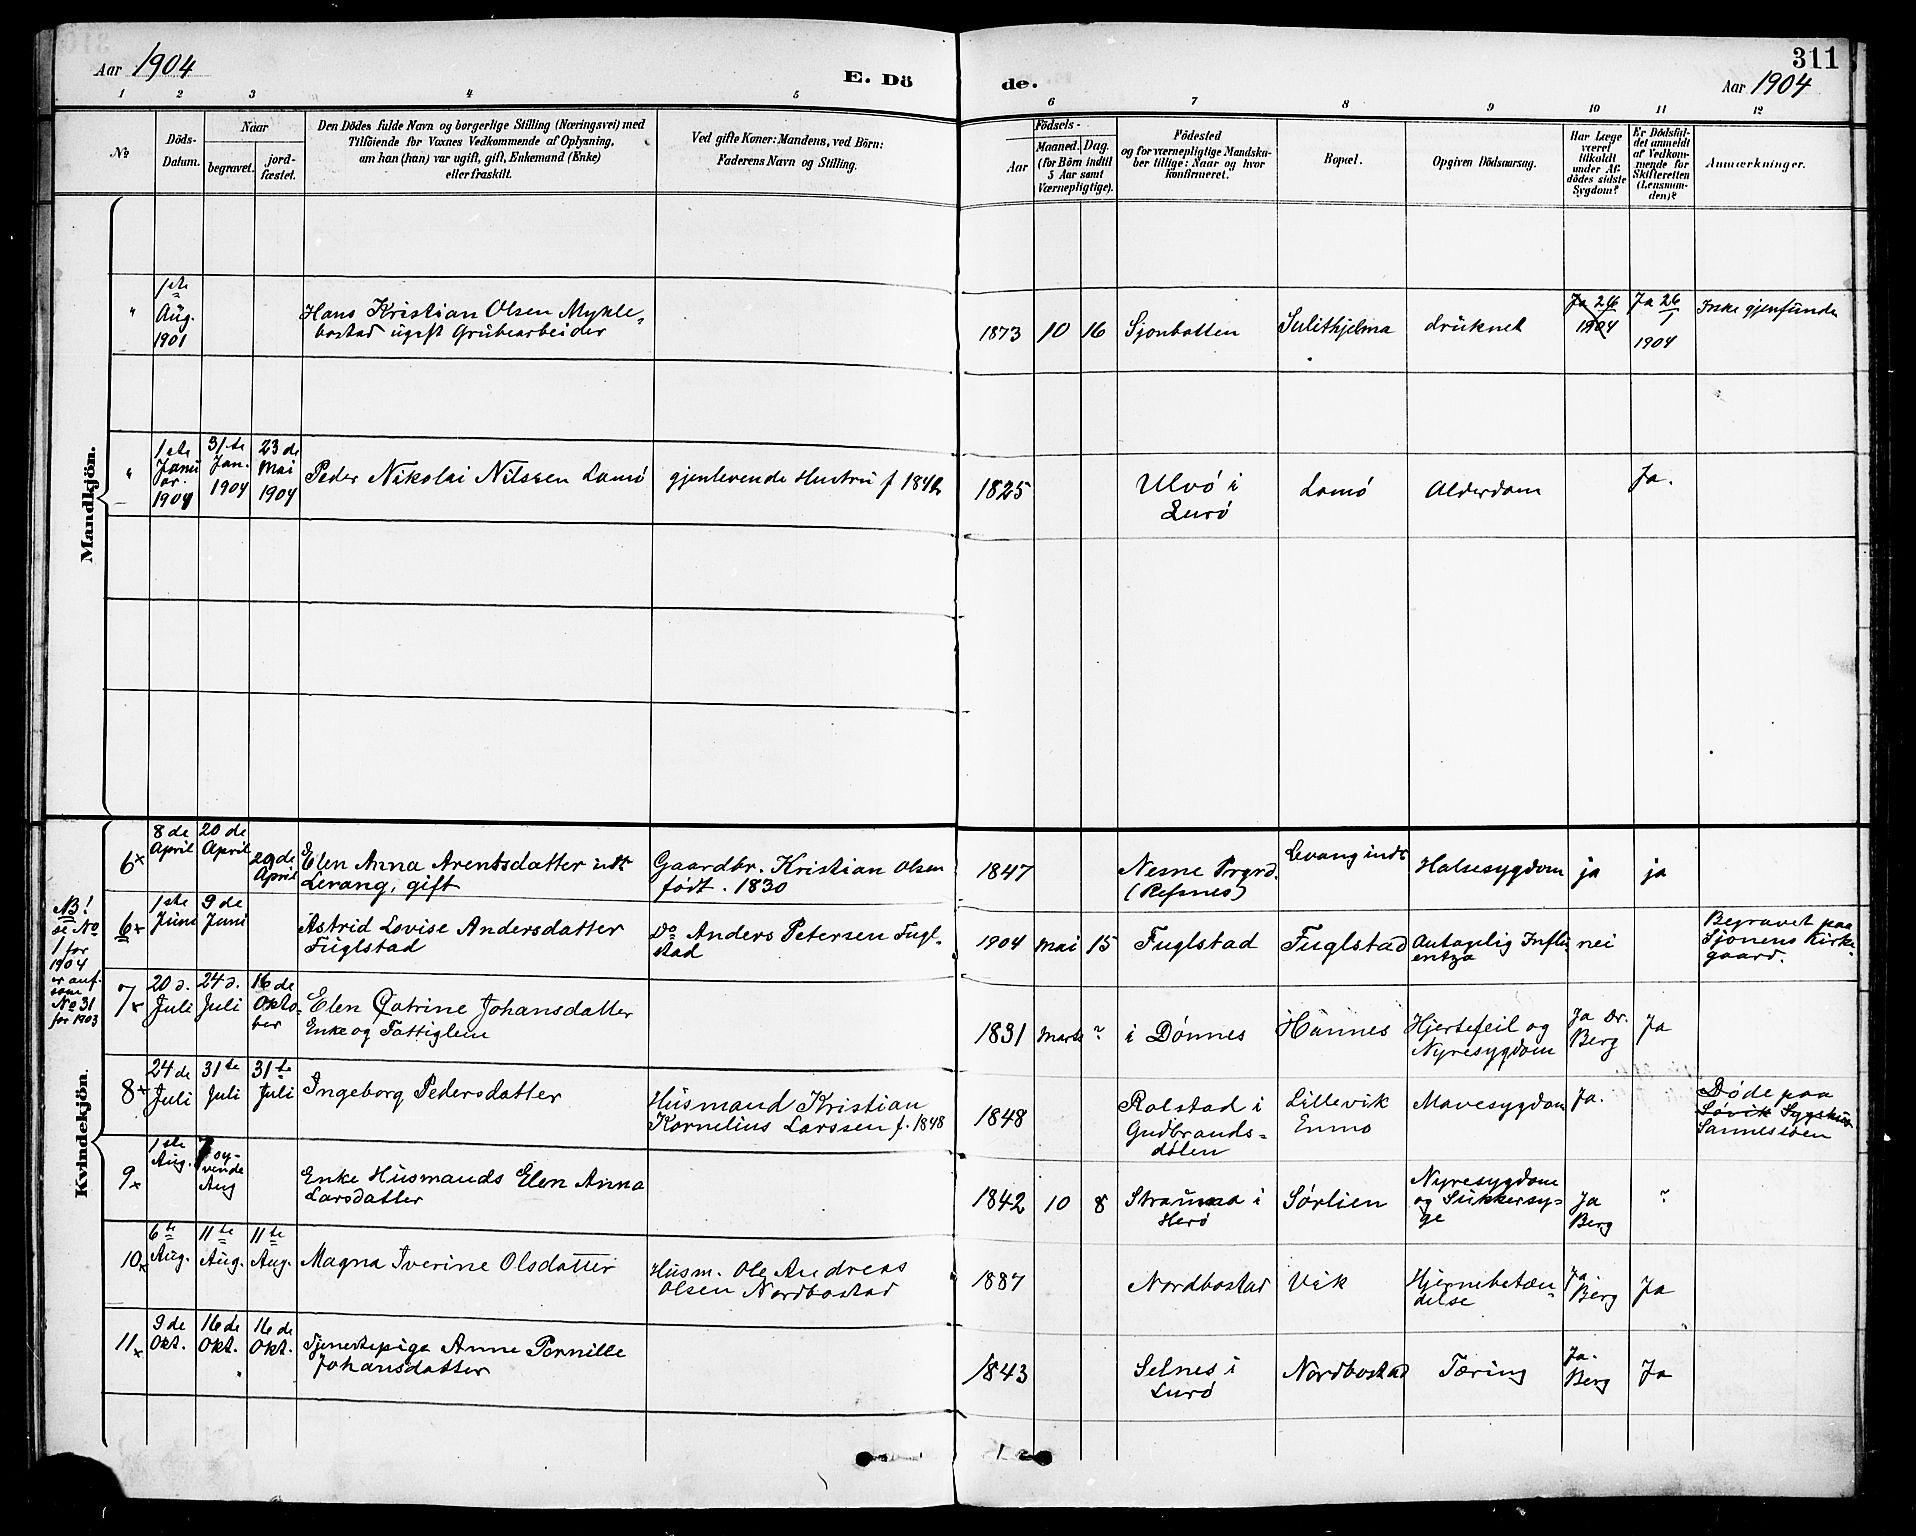 Aar 1904
E. Dö
de.
311
Aar 1904
1 2 3 4 5 6 7 8 9 10 11 12
No
Döds-
Datum.
Naar
begravet.
jord-
fæstet.
Den Dödes fulde Navn og borgerlige Stilling (Næringsvei) med
Tilföiende for Voxnes Vedkommende af Oplysning,
om han (hun) var ugift, gift, Enkemand (Enke)
eller fraskilt.
Ved gifte Koner: Mandens, ved Börn:
Faderens Navn og Stilling.
Födsels-
Aar
Maaned. Dag.
(for Börn indtil
5 Aar samt
Værnepligtige).
Födested
og for værnepligtige Mandska-
ber tillige: Naar og hvor
Konfirmeret.
Bopæl.
Opgiven Dödsaarsag.
Har Læge
været
tilkaldt
under Af-
dödes sidste
Sygdom?
Er Dödsfal-
det anmeldt
af Vedkom-
mende for
Skifteretten
(Lensman-
den)?
Anmærkninger.
Mandkjön.
"
1ste
Aug.
1901
Hans Kristian Olsen Mykle-
bostad ugift Grubearbeider
1873 10 16
Sjonbotten
Sulithjelma
druknet
Ja 26/1
1904
Ja 26/1
1904
Ikke gjenfunden
"
1ste
Janu
ar.
1904
31te
Jan.
1904
23de
Mai
1904
Peder Nikolai Nilssen Lamø
gjenlevende Hustru f 1842
1825
Ulvø i
Lurø
Lamø
Alderdom
Ja.
Kvindekjön.
NB!
se No
1 for
1904
er anf.
som
No 31
for 1903
6x
8de
April
20de
April
29de
April
Elen Anna Arentsdatter indt
Levang, gift
Gaardbr. Kristian Olsen
født. 1830
1847
Nesne Prgrd.
(Refsnes)
Levang indt
Halsesygdom
ja
ja
6x
1ste
Juni
9de
Juni
Astrid Lovise Andersdatter
Fuglstad
Do Anders Petersen Fugl-
stad
1904 Mai 15
Fuglstad
Fuglstad
Antagelig Influ
entza
nei
Begravet paa
Sjonens Kirke-
gaard.
7x
20d.
Juli
24d.
Juli
16de
Okto-
ber
Elen Catrine Johansdatter
Enke og Fattiglem
1831 Marts ?
i Dønnes
Hannes
Hjertefeil og
Nyresygdom
Ja Dr.
Berg
Ja
8x
24de
Juli
31te
Juli
31te
Juli
Ingeborg Pedersdatter
Husmand Kristian
Kornelius Larssen f. 1848
1848
Rolstad i
Gudbrands-
dølen
Lillevik
Enmo
Mavesygdom
Ja.
Døde paa
Søvik Sygehus
Sannessøen
9x
1ste
Aug.
7 sy-
vende
Aug
Enke Husmands Elen Anna
Larsdatter
1842 10 8
Strauma i
Herø
Sørlien
Nyresygdom
og Sukkersy-
ge
Ja
Berg
?
10x
6te
Aug.
11te
Aug.
11te
Aug.
Magna Iverine Olsdatter
Husm. Ole Andreas
Olsen Nordbostad
1887
Nordbostad
Vik
Hjernebetæn-
delse
Ja.
Berg
Ja
11x
9de
Okt.
16de
Okt.
16de
Okt.
Tjenestepige Anne Pernille
Johansdatter
1843
Selnes i
Lurø
Nordbostad
Tæring
Ja.
Berg
Ja